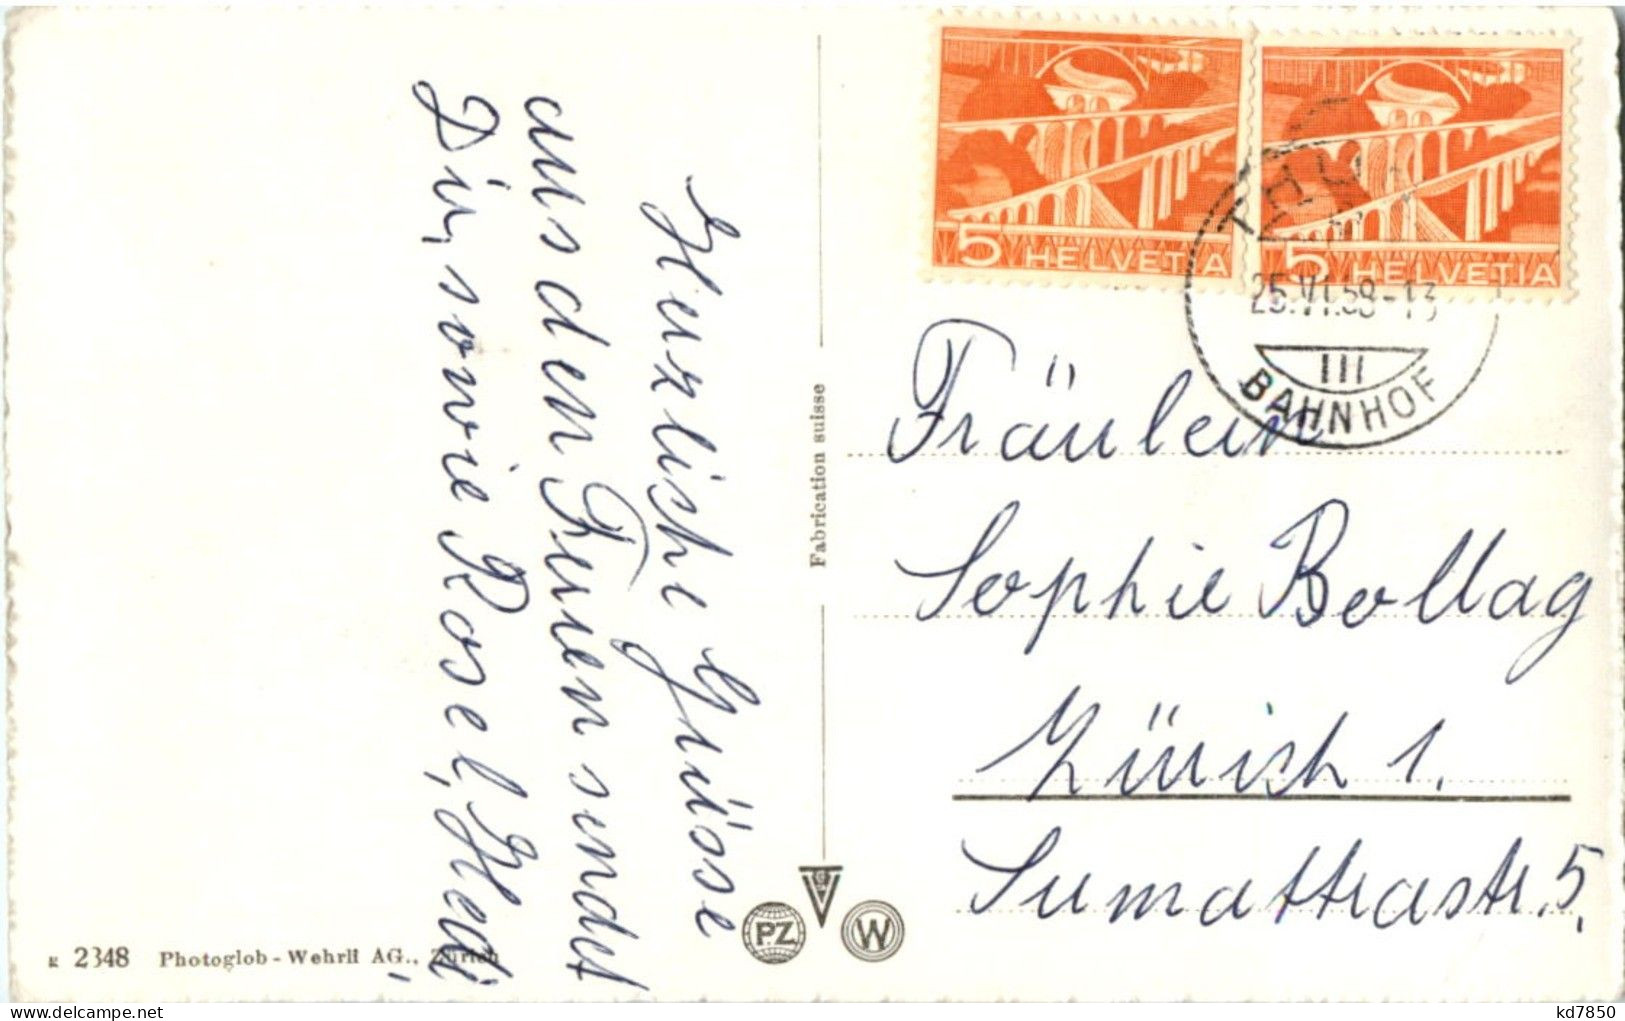 Herzliche Grüsse
aus den Ferien sendet
Dir, sowie Rosel, Hedi
Fabrication suisse
K 2348 Photoglob-Wehrli AG., Zürich
PZ
W
5 HELVETIA
5 HELVETIA
THUN
25.VI.58-13
III
BAHNHOF
Fräulein
Sophie Bollag
Zürich 1.
Sumattrastr. 5.
kd7850